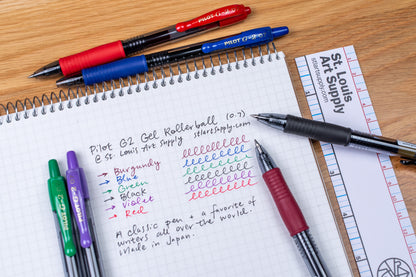 PILOT G-2 07
PILOT G-2 07
Pilot G2 Gel Rollerball (0.7)
@ St. Louis Art Supply stlartsupply.com
→ Burgundy
→ Blue
→ Green
→ Black
→ Violet
→ Red
A classic pen & a favorite of
writers all over the world.
Made in Japan.
St. Louis
Art Supply
stlartsupply.com